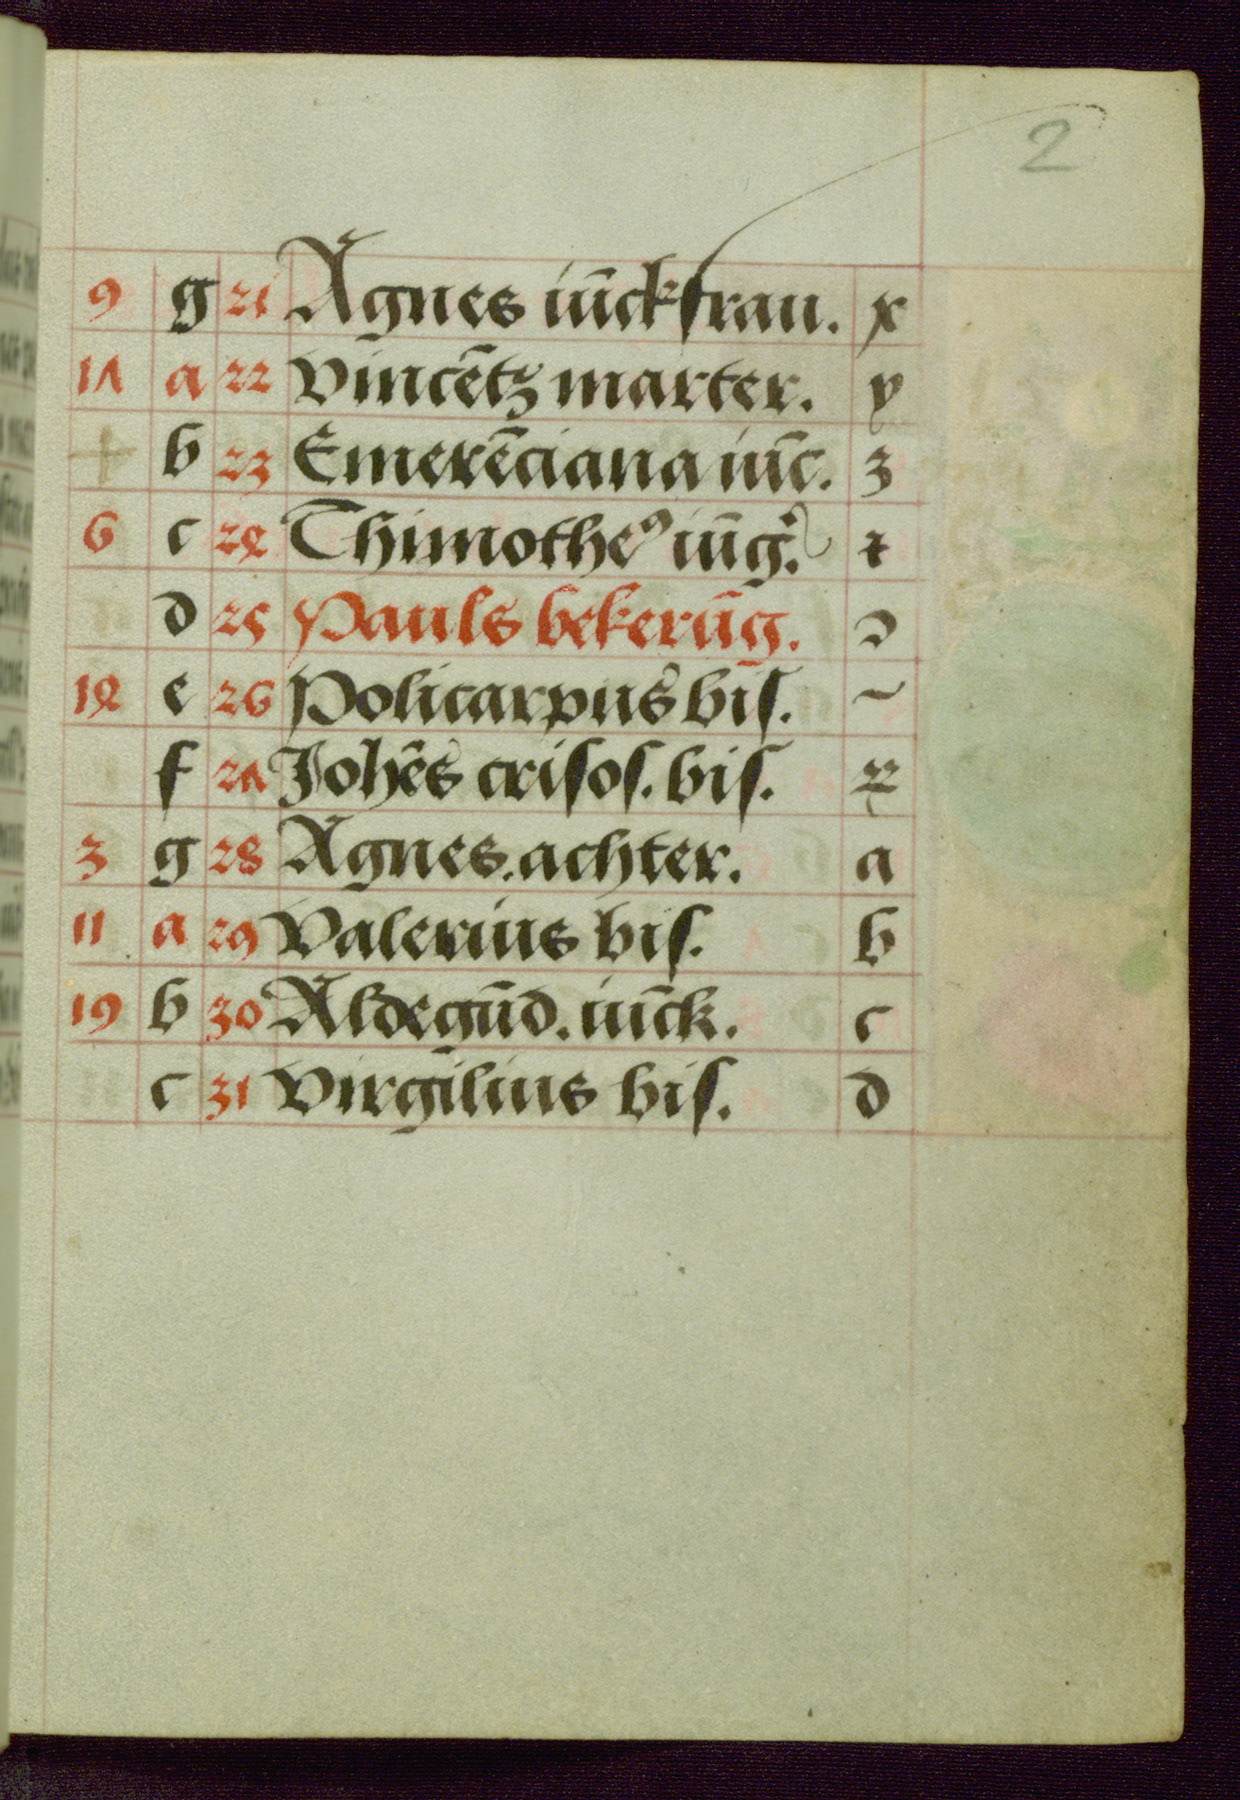 2
9 g 21 Agnes iūckfrau. x
17 a 22 Vincētz marter. y
b 23 Emerēciana iūc. z
6 c 24 Thimotheꝰ iūg̃.
d 25 Pauls bekerūg.
14 e 26 Policarpus bis.
f 27 Johēs crisos. bis.
3 g 28 Agnes. achter. a
11 a 29 Valerius bis. b
19 b 30 Aldegūd. iūck. c
c 31 Virgilius bis. d